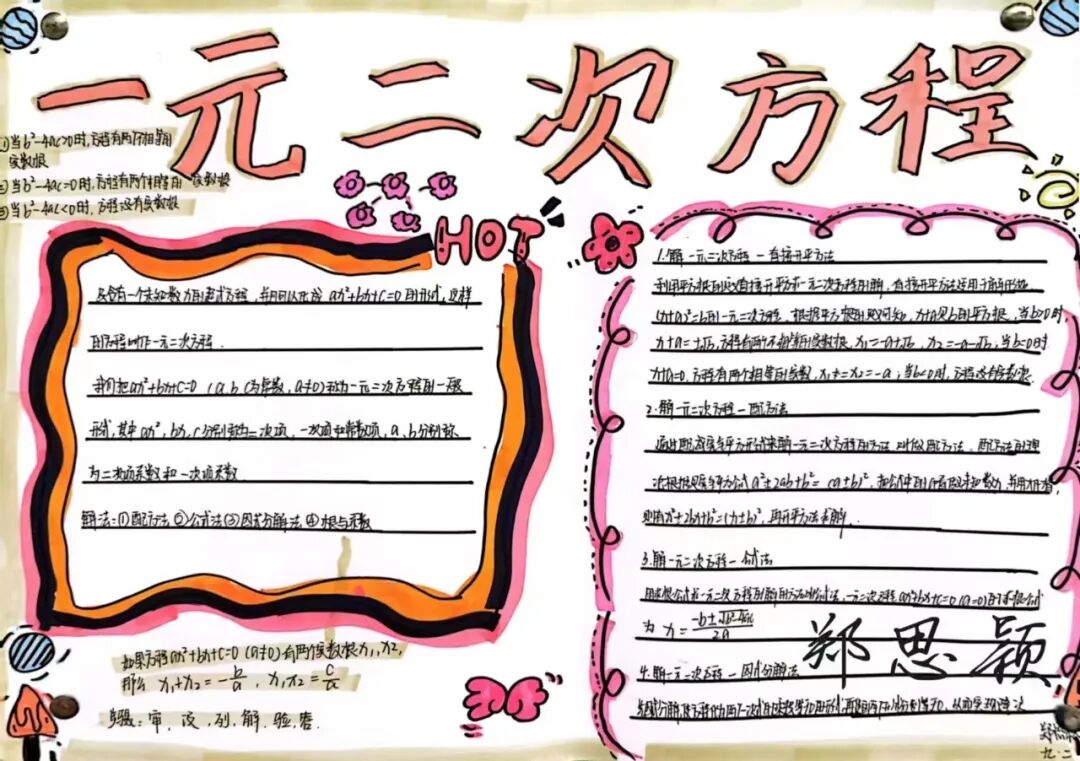 一元二次方程
①当b²-4ac>0时,方程有两个不相等的
实数根
②当b²-4ac=0时,方程有两个相等的实数根
③当b²-4ac<0时,方程没有实数根
HOT
只含有一个未知数x的整式方程,并且可以化成ax²+bx+c=0的形式,这样
的方程叫做一元二次方程.
我们把ax²+bx+c=0 (a,b,c为常数,a≠0)称为一元二次方程的一般
形式,其中ax²,bx,c分别称为二次项,一次项和常数项,a、b分别称
为二次项系数和一次项系数.
解法:①配方法 ②公式法 ③因式分解法 ④根与系数
如果方程ax²+bx+c=0 (a≠0)有两个实数根x₁,x₂,
那么 x₁+x₂=-b/a, x₁x₂=c/a
步骤:审、设、列、解、验、答.
1.解一元二次方程一直接开平方法
利用平方根的定义直接开平方求一元二次方程的解,直接开平方法适用于解形如
(x+a)²=b的一元二次方程.根据平方根的定义可知,x+a是b的平方根,当b>0时,
x+a=±√b,方程有两个不相等的实数根,x₁=-a+√b, x₂=-a-√b,当b=0时
x+a=0,方程有两个相等的实数,x₁=x₂=-a;当b<0时,方程没有实数根.
2.解一元二次方程一配方法
通过配成完全平方形式来解一元二次方程的方法,叫做配方法.配方法的理
根据完全平方公式a²±2ab+b²=(a±b)²,把公式中的a看做未知数x,并用x代替,
则有x²±2bx+b²=(x±b)²,再开平方法求解.
3.解一元二次方程一公式法
用求根公式求一元二次方程的解的方法叫公式法,一元二次方程ax²+bx+c=0(a≠0)的求根公式
为 x=(-b±√b²-4ac)/2a
郑思颖
4.解一元二次方程一因式分解法
先因式分解使方程化为两个一次式的乘积等于0的形式,再使这两个一次式分别等于0,从而实现降次
九.二